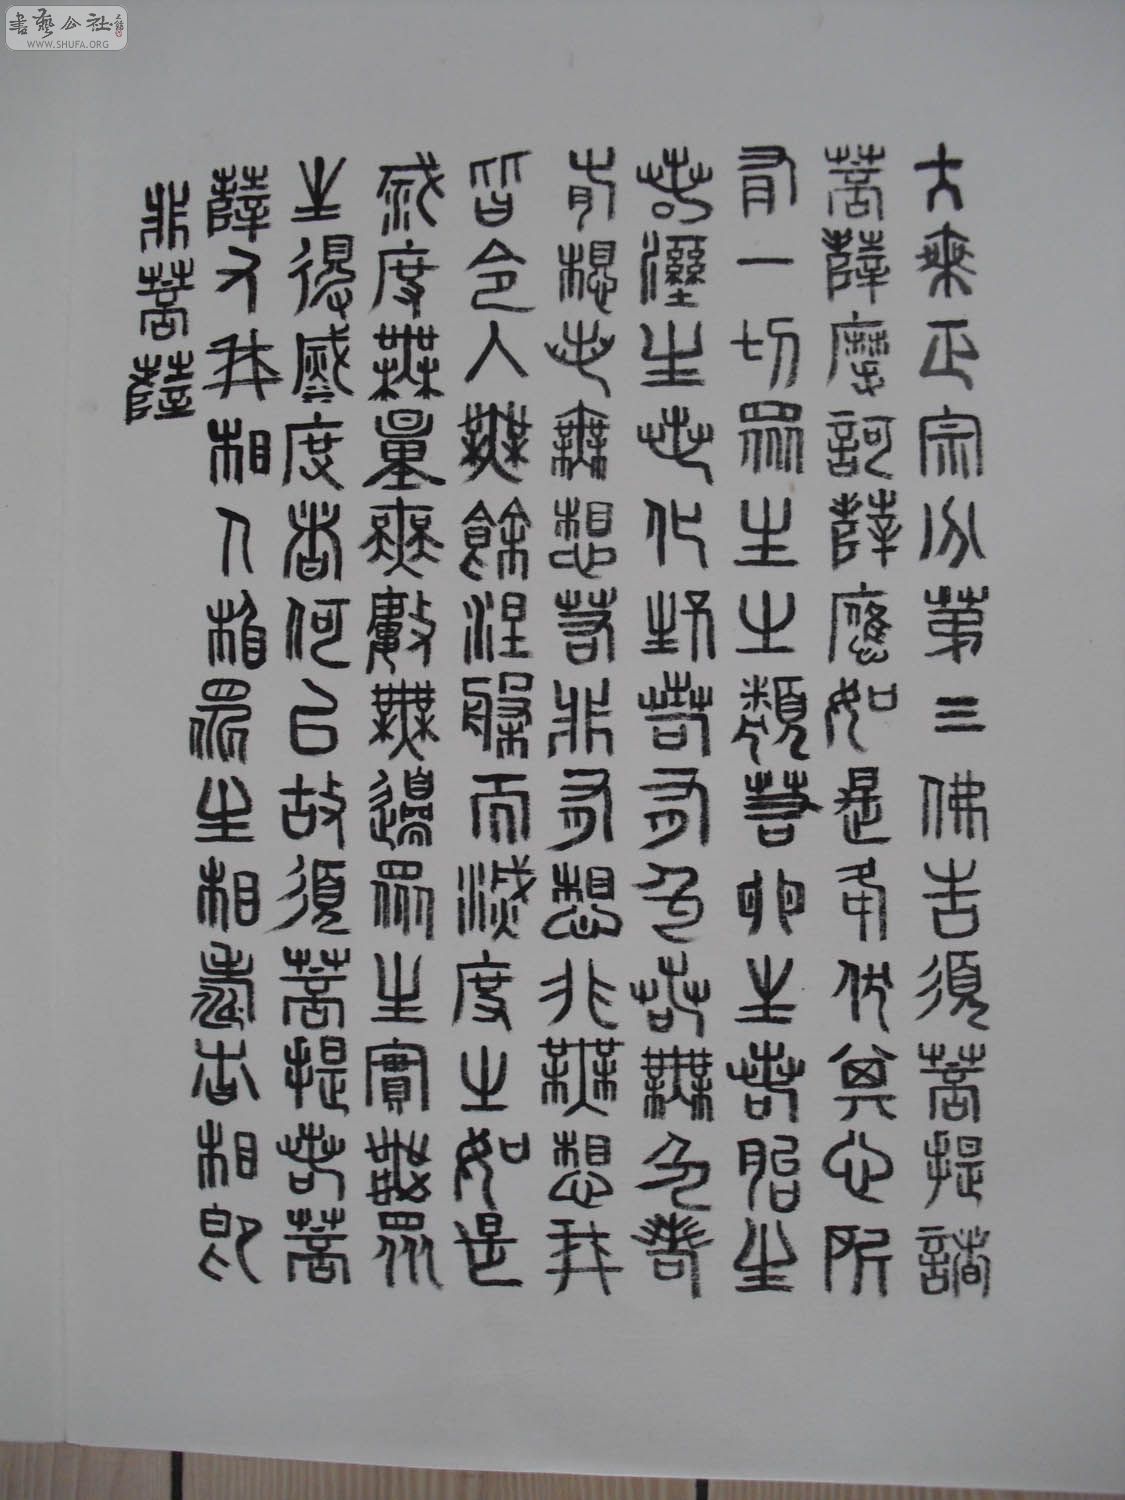 書藝公社
WWW.SHUFA.ORG
大乘正宗分第三佛告須菩提諸
菩薩摩訶薩應如是降伏其心所
有一切眾生之類若卵生若胎生
若濕生若化若有色若無色若
有想若無想若非有想非無想我
皆令入無餘涅槃而滅度之如是
滅度無量無數無邊眾生實無眾
生得滅度者何以故須菩提若菩
薩有我相人相眾生相壽者相即
非菩薩